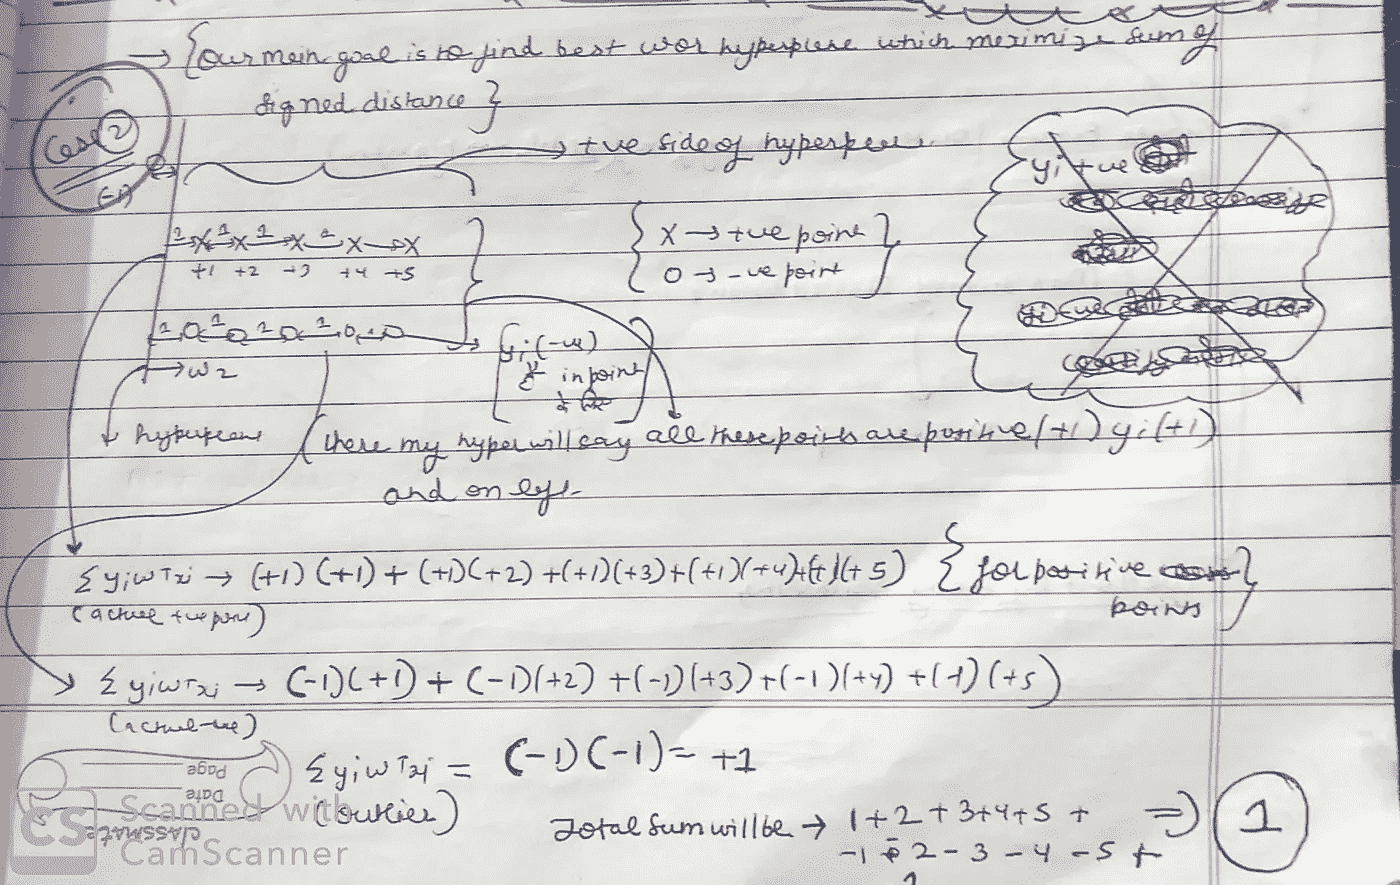 → {our main goal is to find best w or hyperplene which meximize sum of
signed distance }
Case 2
→ +ve side of hyperplen
yi +ve
1 x 1 x 1 x 1 x → x
+1 +2 +3 +4 +5
{ x → +ve point
0 → -ve point }
1 0 1 0 1 0 1 0 0
yi (-ve)
in point
→ w2
hyperplene
(here my hyper will say all these points are positive (+1) yi (+1)
and on
Σ yi wᵀxi → (+1)(+1) + (+1)(+2) + (+1)(+3) + (+1)(+4) + (+1)(+5) { for positive
points }
(actual +ve point)
Σ yi wᵀxi → (-1)(+1) + (-1)(+2) + (-1)(+3) + (-1)(+4) + (-1)(+5)
(actual -ve)
Σ yi wᵀxi = (-1)(-1) = +1
(outlier)
Total sum will be → 1+2+3+4+5 + ⇒ 1
-1-2-3-4-5 +
1
classmate
Date
Page
CS Scanned with
CamScanner